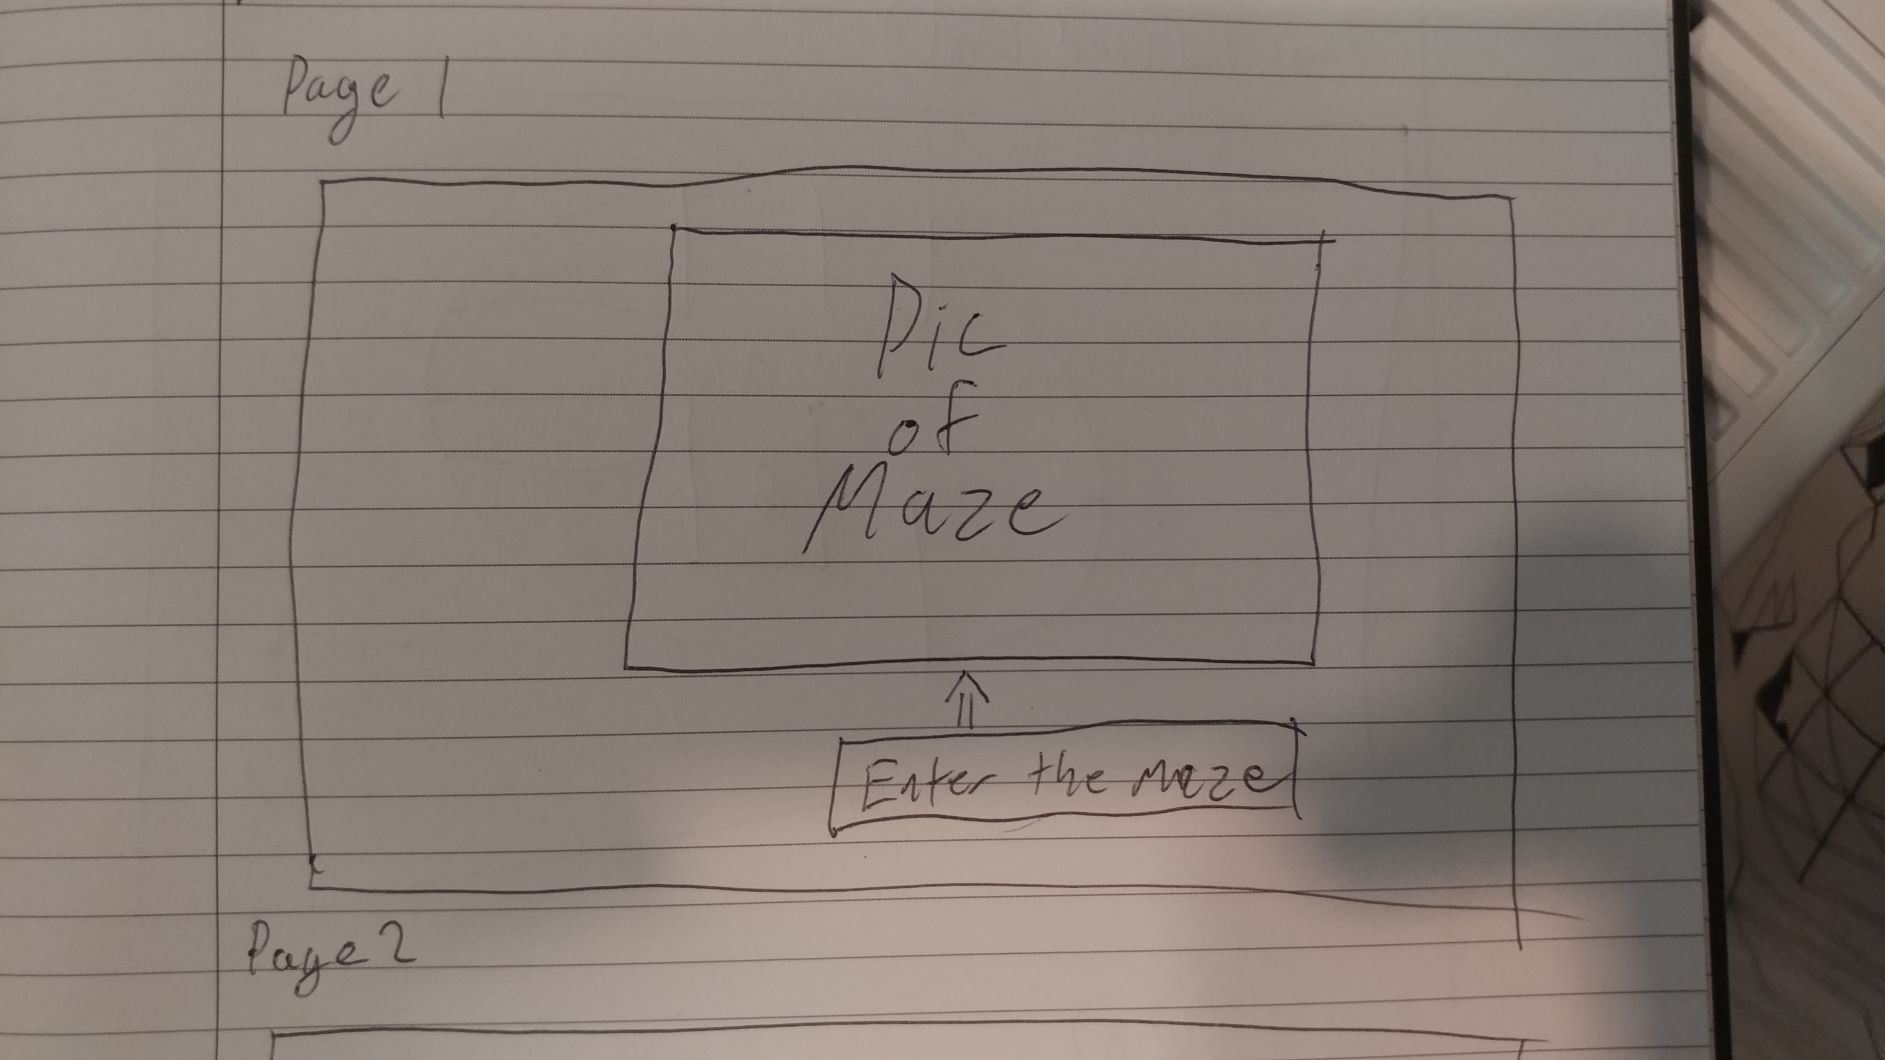 Page 1
Pic
of
Maze
Enter the maze
Page 2